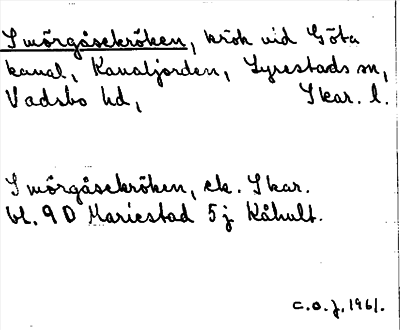 Smörgåsekröken, krök vid Göta
kanal, Kanaljorden, Lyrestads sn,
Vadsbo hd, Skar. l.
Smörgåsekröken, ek. Skar.
bl. 9 D Mariestad 5 j Kåhult.
C.O.J. 1961.